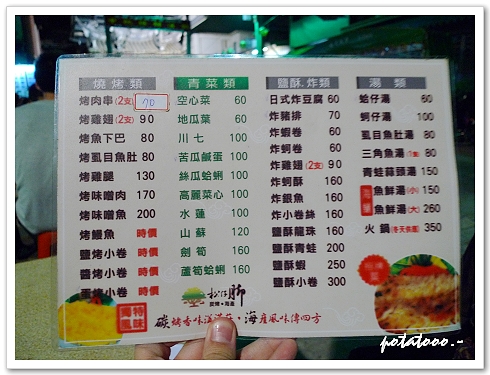 燒烤類
烤肉串(2支) 70
烤雞翅(2支) 90
烤魚下巴 80
烤虱目魚肚 80
烤雞腿 130
烤味噌肉 170
烤味噌魚 200
烤鰻魚 時價
鹽烤小卷 時價
醬烤小卷 時價
蛋烤小卷 時價
青菜類
空心菜 60
地瓜葉 60
川七 100
苦瓜鹹蛋 100
絲瓜蛤蜊 100
高麗菜心 100
水蓮 100
山蘇 120
劍筍 160
蘆筍蛤蜊 160
鹽酥.炸類
日式炸豆腐 60
炸豬排 70
炸蝦卷 60
炸蚵卷 60
炸雞翅(2支) 90
炸蚵酥 160
炸銀魚 160
炸小卷絲 160
鹽酥龍珠 160
鹽酥青蛙 200
鹽酥蝦 250
鹽酥小卷 300
湯類
蛤仔湯 60
蚵仔湯 60
虱目魚肚湯 80
三角魚湯 80
青蛙蒜頭湯 150
魚鮮湯(小) 150
魚鮮湯(大) 260
火鍋(冬天供應) 350
松仔腳
炭烤•海產
獨特風味
碳烤香味滿•海產風味傳四方
potatooo.~